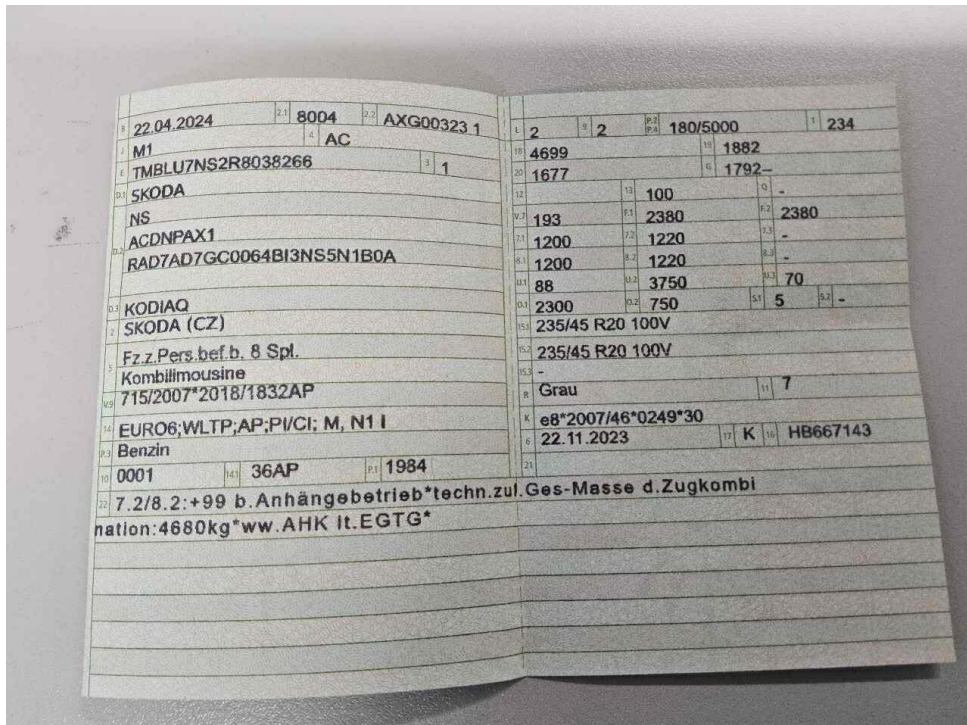 B 22.04.2024 2.1 8004 2.2 AXG00323 1
J M1 4 AC
E TMBLU7NS2R8038266 3 1
D.1 SKODA
NS
D.2 ACDNPAX1
RAD7AD7GC0064BI3NS5N1B0A
D.3 KODIAQ
2 SKODA (CZ)
5 Fz.z.Pers.bef.b. 8 Spl.
Kombilimousine
V.9 715/2007*2018/1832AP
14 EURO6;WLTP;AP;PI/CI; M, N1 I
P.3 Benzin
10 0001 14.1 36AP P.1 1984
L 2 9 2 P.2 P.4 180/5000 T 234
18 4699 19 1882
20 1677 G 1792–
12 13 100 Q -
V.7 193 F.1 2380 F.2 2380
7.1 1200 7.2 1220 7.3 -
8.1 1200 8.2 1220 8.3 -
U.1 88 U.2 3750 U.3 70
O.1 2300 O.2 750 S.1 5 S.2 -
15.1 235/45 R20 100V
15.2 235/45 R20 100V
15.3 -
R Grau 11 7
K e8*2007/46*0249*30
6 22.11.2023 17 K 16 HB667143
21
22 7.2/8.2:+99 b.Anhängebetrieb*techn.zul.Ges-Masse d.Zugkombi
nation:4680kg*ww.AHK lt.EGTG*